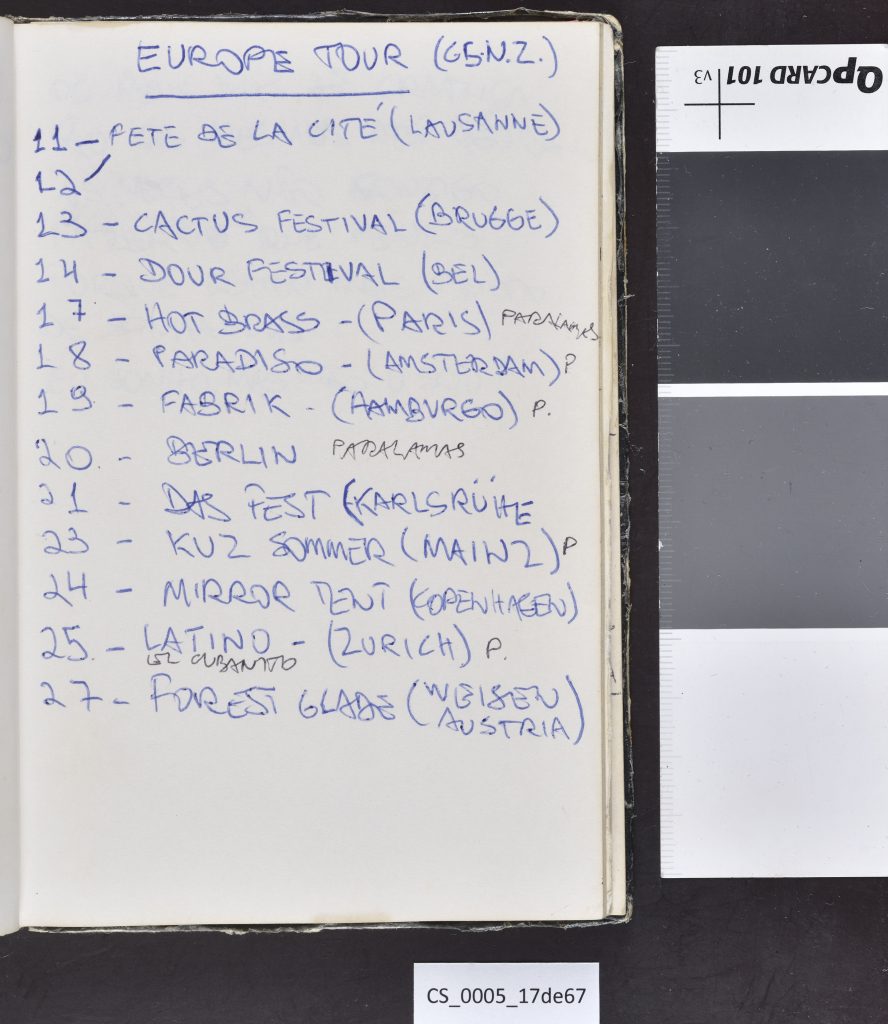 EUROPE TOUR (CS.N.Z.)
11 - FETE DE LA CITÉ (LAUSANNE)
12
13 - CACTUS FESTIVAL (BRUGGE)
14 - DOUR FESTIVAL (BEL)
17 - HOT BRASS - (PARIS) PARALAMAS
18 - PARADISO - (AMSTERDAM) P
19 - FABRIK - (HAMBURGO) P.
20. - BERLIN PARALAMAS
21 - DAS FEST (KARLSRÜHE
23 - KUZ SOMMER (MAINZ) P
24 - MIRROR TENT (KOPENHAGEN)
25. - LATINO - (ZURICH) P.
EL CUBANITO
27 - FOREST GLADE (WEISEN
AUSTRIA)
QPCARD 101 v3
CS_0005_17de67